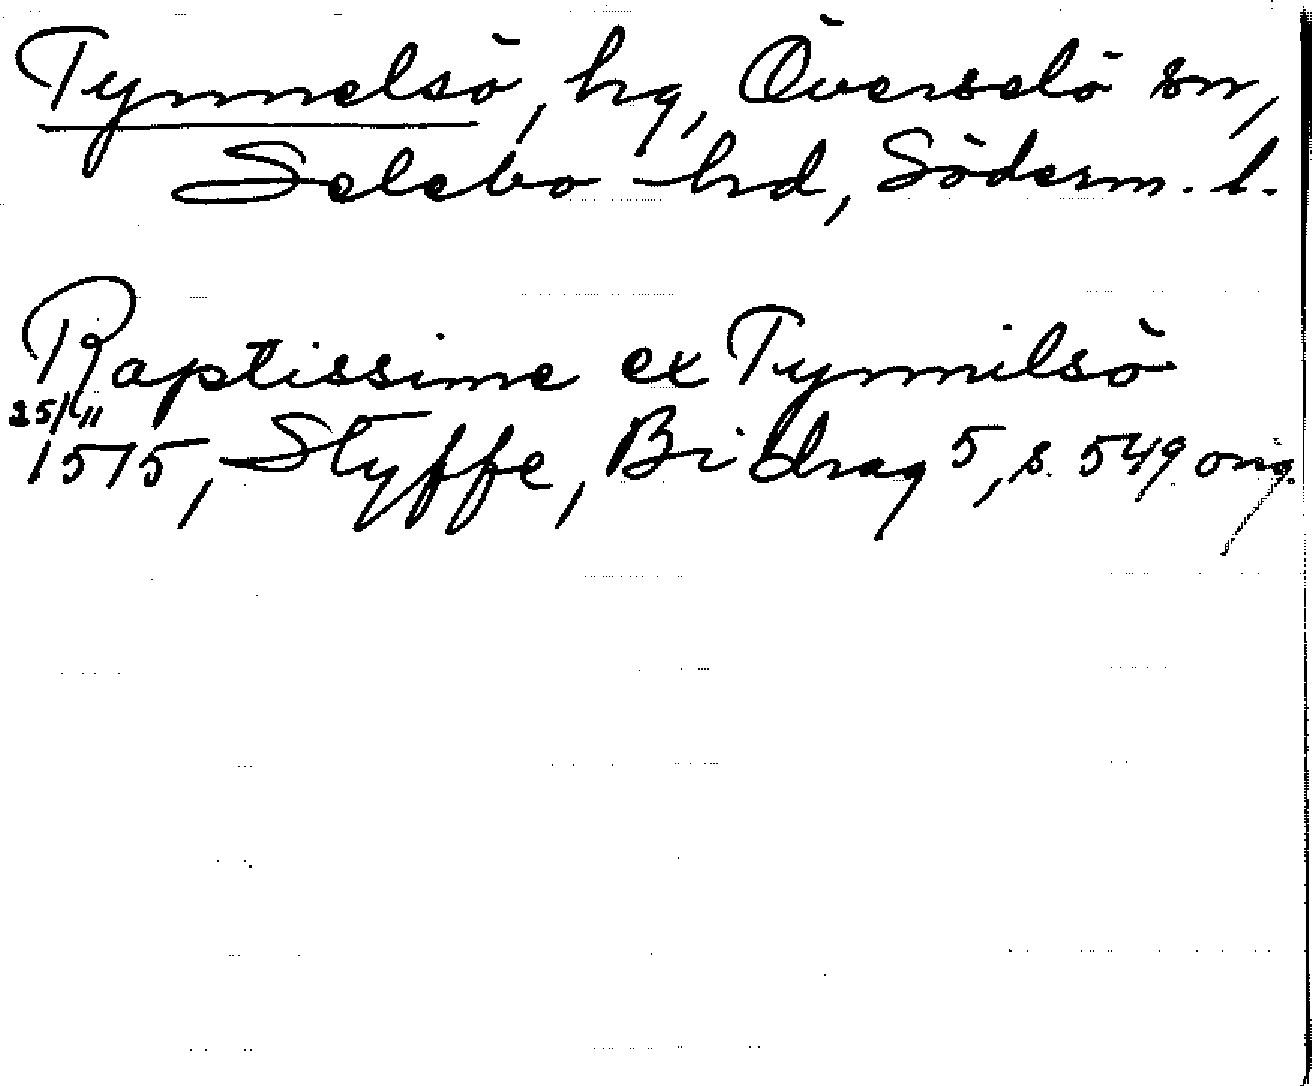 Tynnelsö, hg, Överselö sn,
Selebo hd, Söderm. l.
Raptissime ex Tynnilsö
25/11
1515, Styffe, Bidrag 5, s. 549 orig.